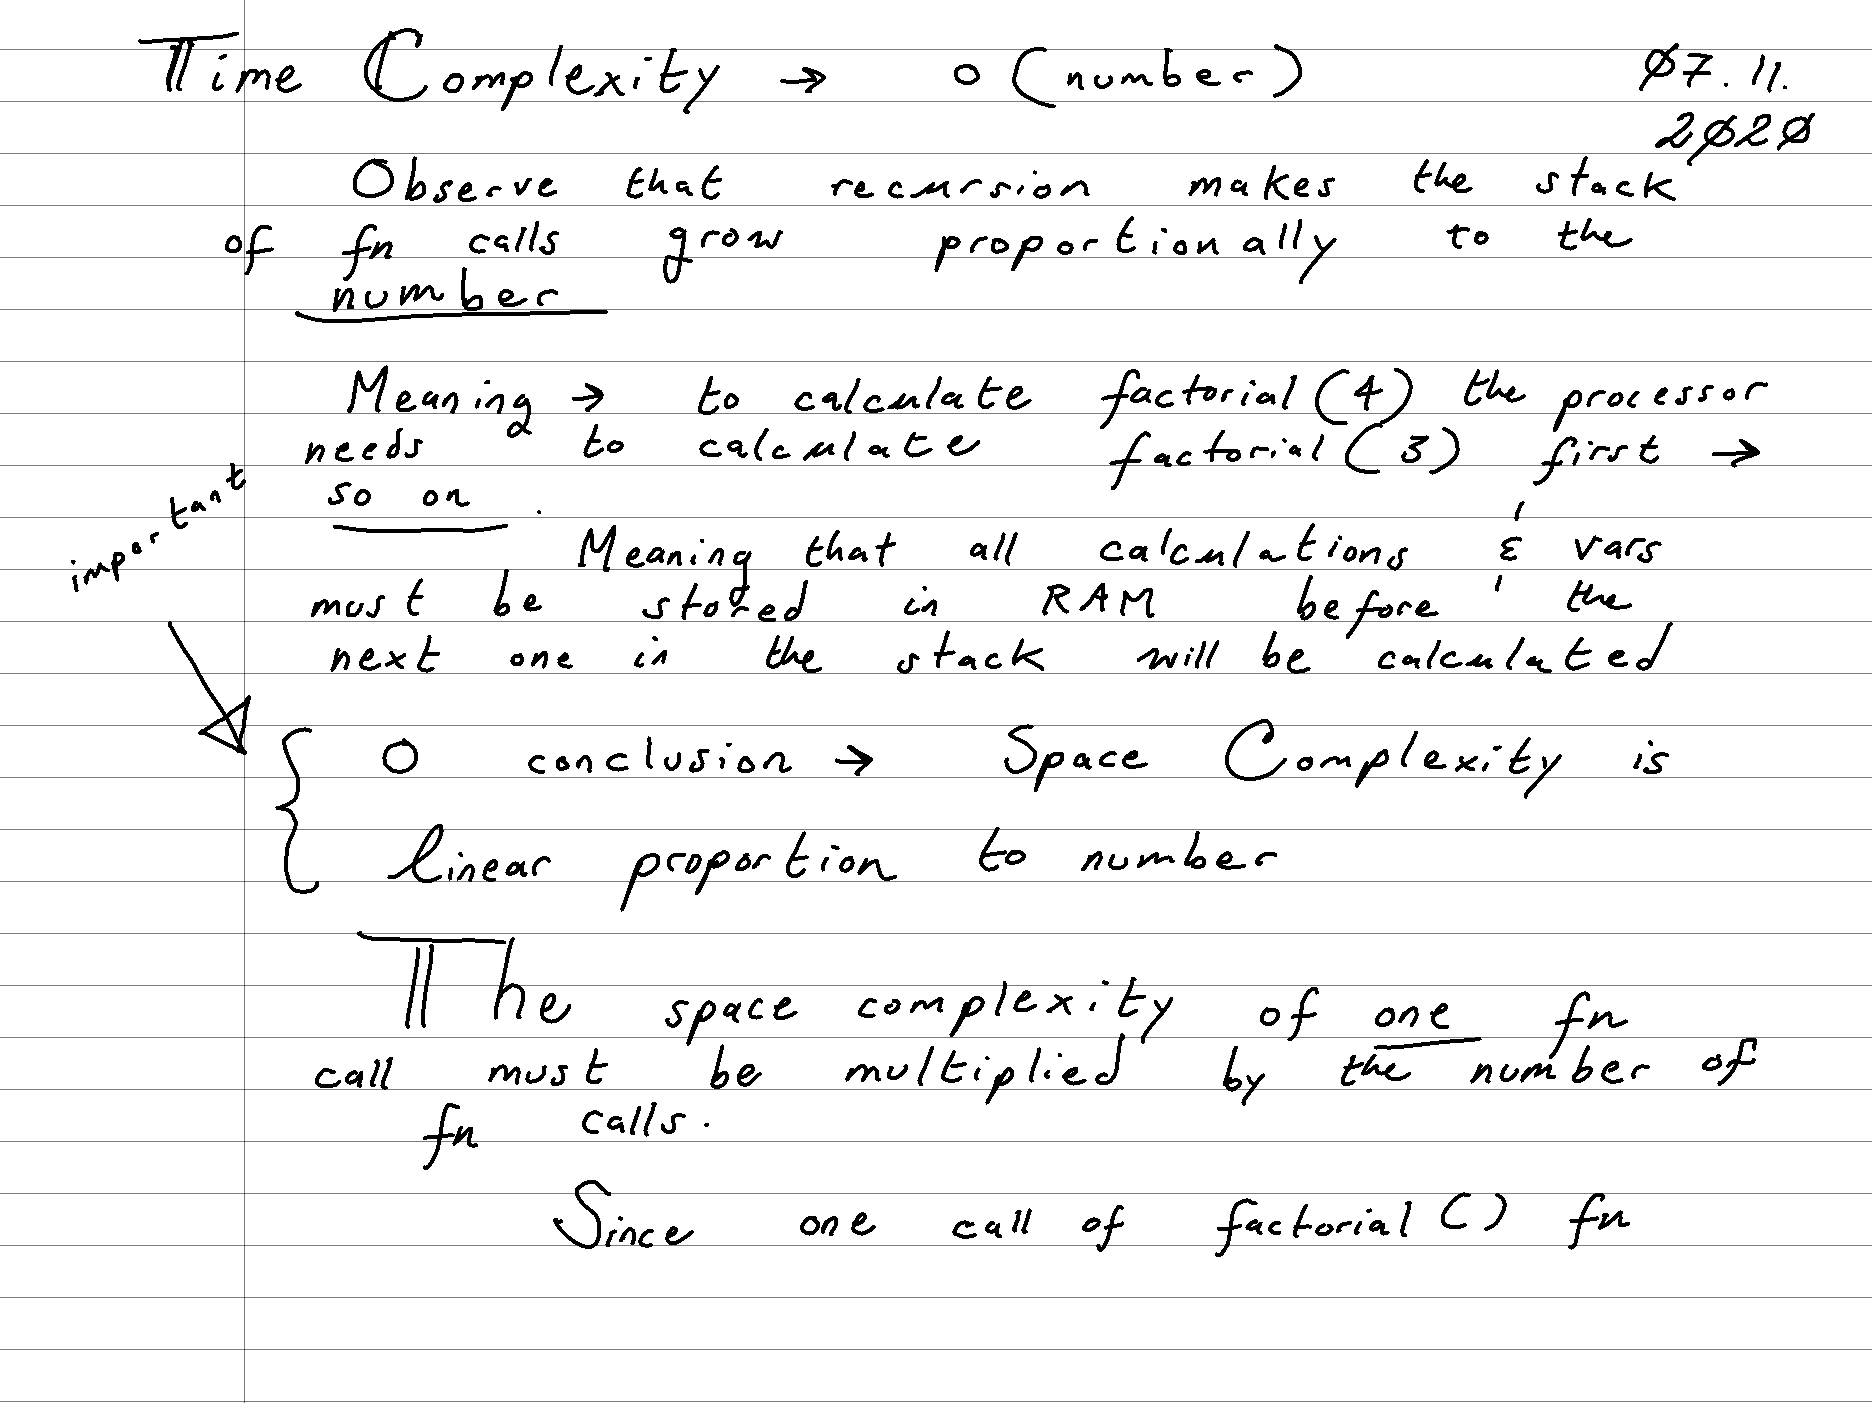 Time Complexity → o (number)
Ø7.11.
2Ø2Ø
Observe that recursion makes the stack
of fn calls grow proportionally to the
number
Meaning → to calculate factorial (4) the processor
needs to calculate factorial (3) first →
so on.
Meaning that all calculations & vars
must be stored in RAM before the
next one in the stack will be calculated
important
O conclusion → Space Complexity is
linear proportion to number
The space complexity of one fn
call must be multiplied by the number of
fn calls.
Since one call of factorial () fn